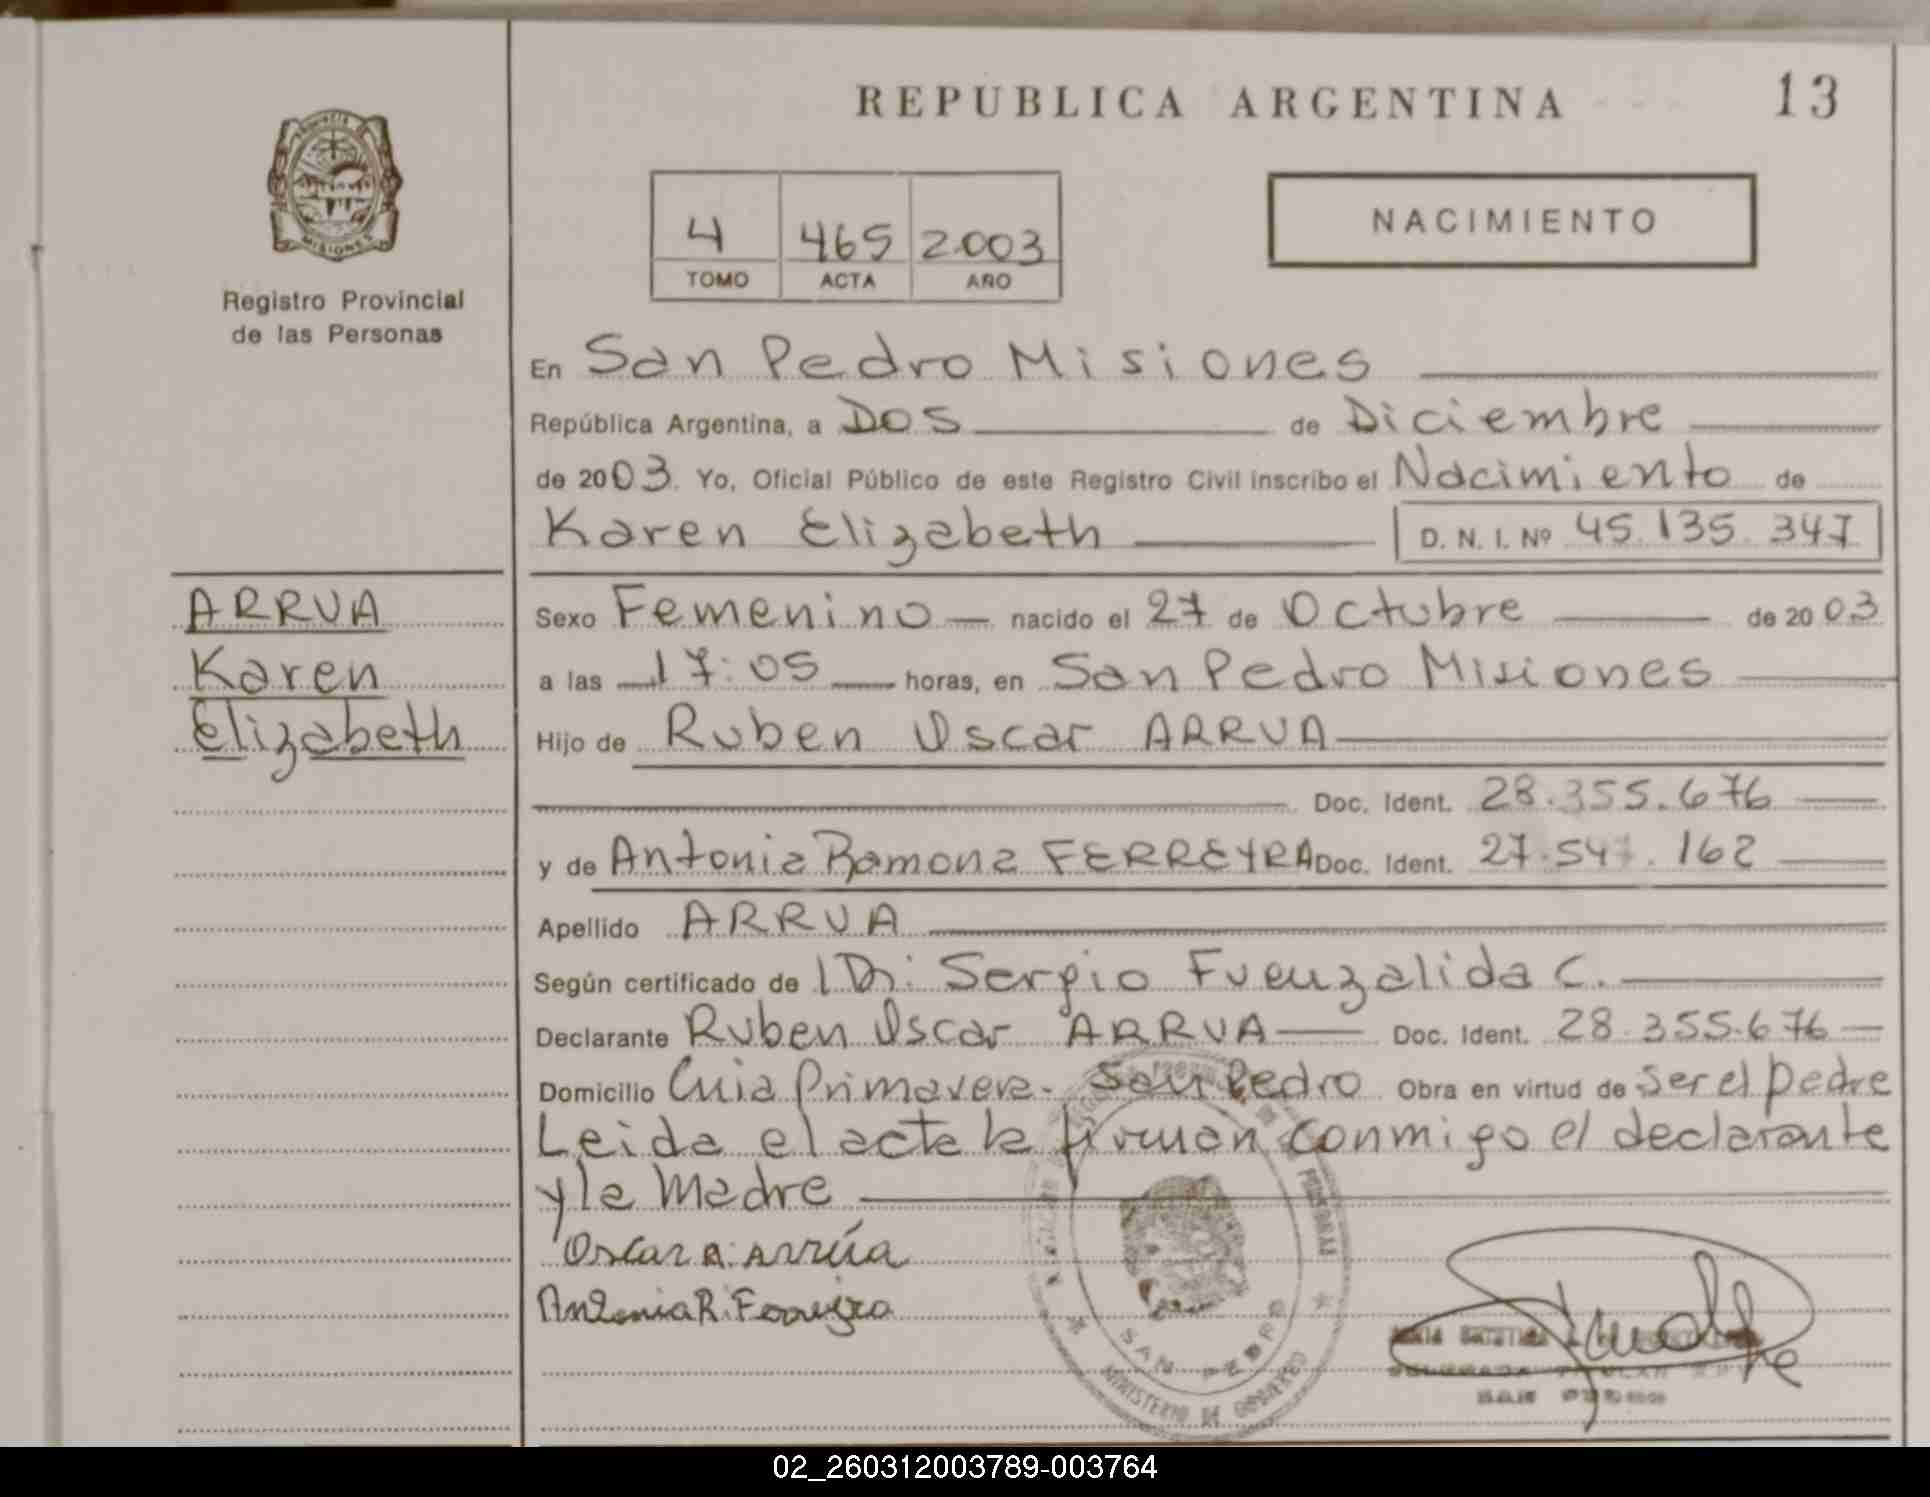 REPUBLICA ARGENTINA
13
MISIONES
Registro Provincial
de las Personas
4 465 2003
TOMO ACTA AÑO
NACIMIENTO
En San Pedro Misiones
República Argentina, a Dos de Diciembre
de 2003. Yo, Oficial Público de este Registro Civil inscribo el Nacimiento de
Karen Elizabeth D. N. I. Nº 45.135.347
ARRUA
Karen
Elizabeth
Sexo Femenino nacido el 27 de Octubre de 2003
a las 17:05 horas, en San Pedro Misiones
Hijo de Ruben Oscar ARRUA
Doc. Ident. 28.355.676
y de Antonia Ramona FERREYRA Doc. Ident. 27.547.162
Apellido ARRUA
Según certificado de Dr: Sergio Fuenzalida C.
Declarante Ruben Oscar ARRUA Doc. Ident. 28.355.676
Domicilio Cuia Primavera - San Pedro Obra en virtud de ser el padre
Leida el acta la firman conmigo el declarante
y la Madre
Oscar R. Arrúa
Antonia R. Ferreyra
SAN PEDRO
MINISTERIO DE GOBIERNO
02_260312003789-003764